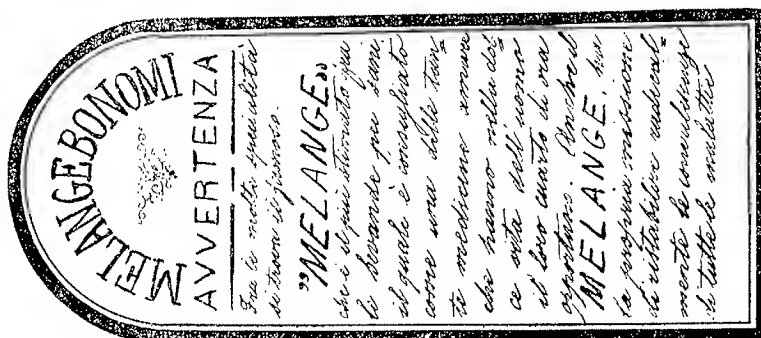 MELANGE BONOMI
AVVERTENZA
Fra le molte specialità
si trova il famoso
"MELANGE"
che è il più stimato fra
le bevande pei sani
il quale è consigliato
come una delle tan=
te medicine amare
che hanno nella dol=
ce vita dell'uomo
il loro quarto di ora
opportuno. Anche il
MELANGE, ha
la propria missione
di ristabilire radical=
mente le conseguenze
di tutte le malattie